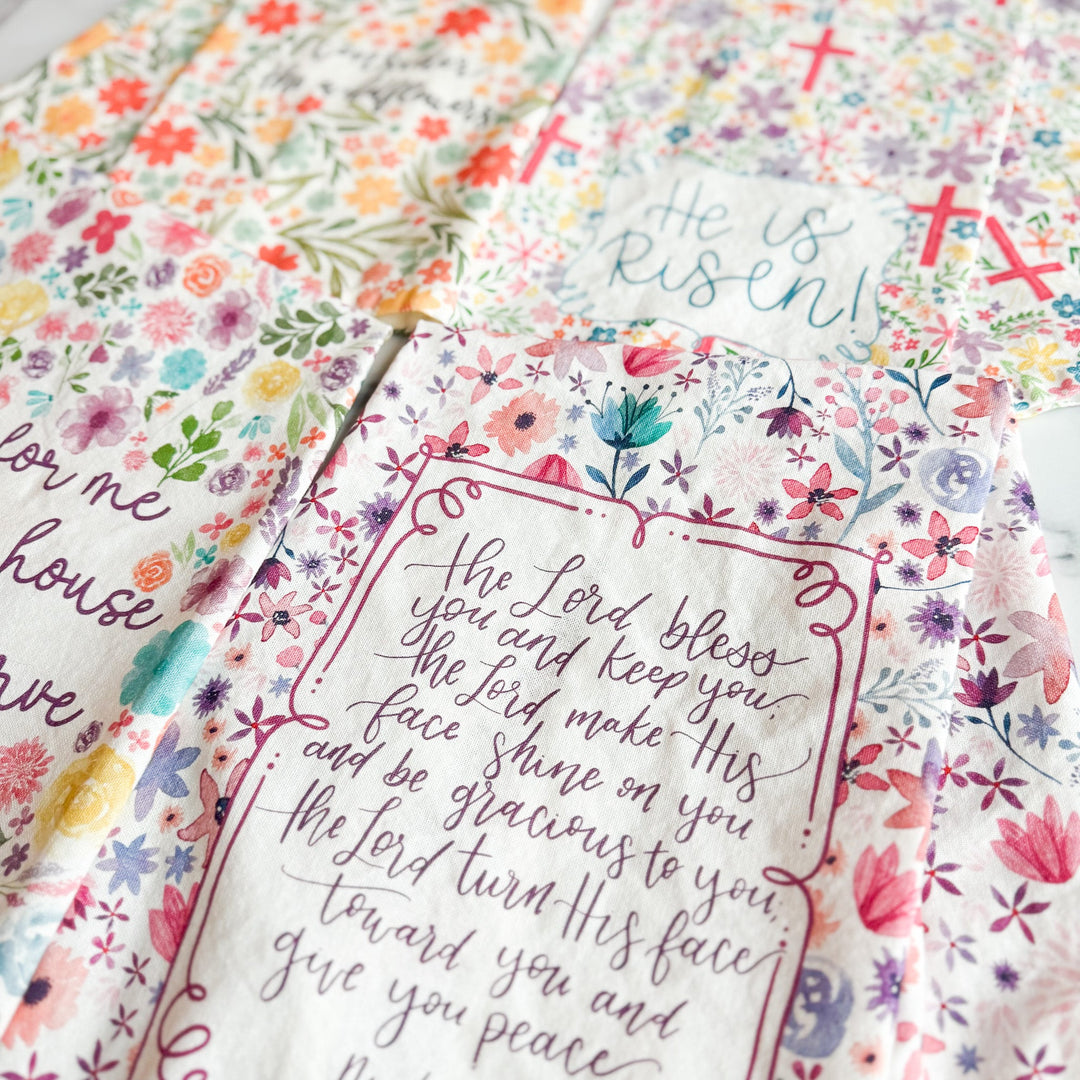 Consider
the wildflowers
He is
Risen!
for me
house
rve
the Lord bless
you and keep you;
the Lord make His
face shine on you
and be gracious to you;
the Lord turn His face
toward you and
give you peace